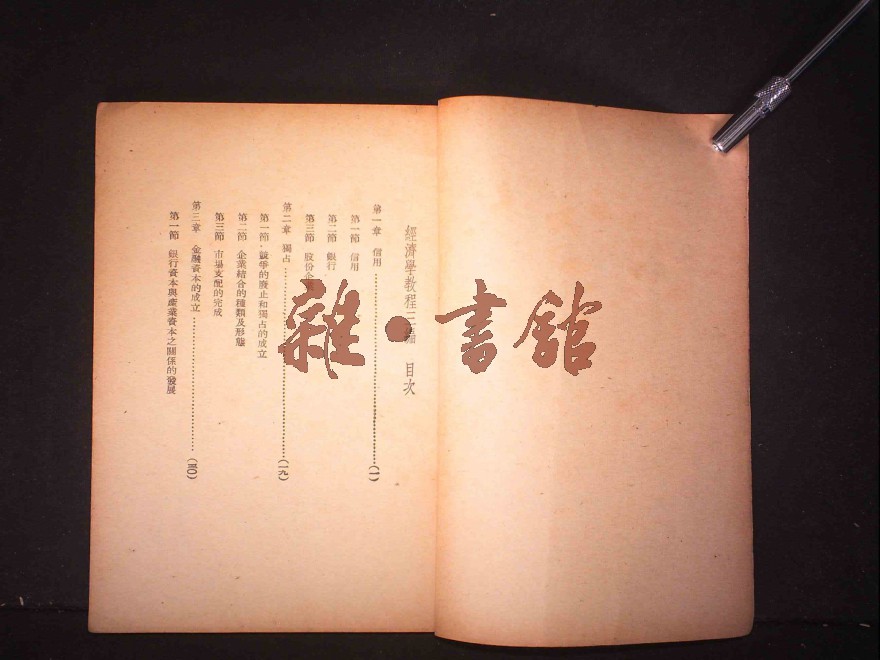 經濟學教程三編 目次
第一章 信用…………(一)
第一節 信用
第二節 銀行
第三節 股份企業
第二章 獨占…………(一九)
第一節 競爭的廢止和獨占的成立
第二節 企業結合的種類及形態
第三節 市場支配的完成
第三章 金融資本的成立…………(五〇)
第一節 銀行資本與產業資本之關係的發展
雜·書館